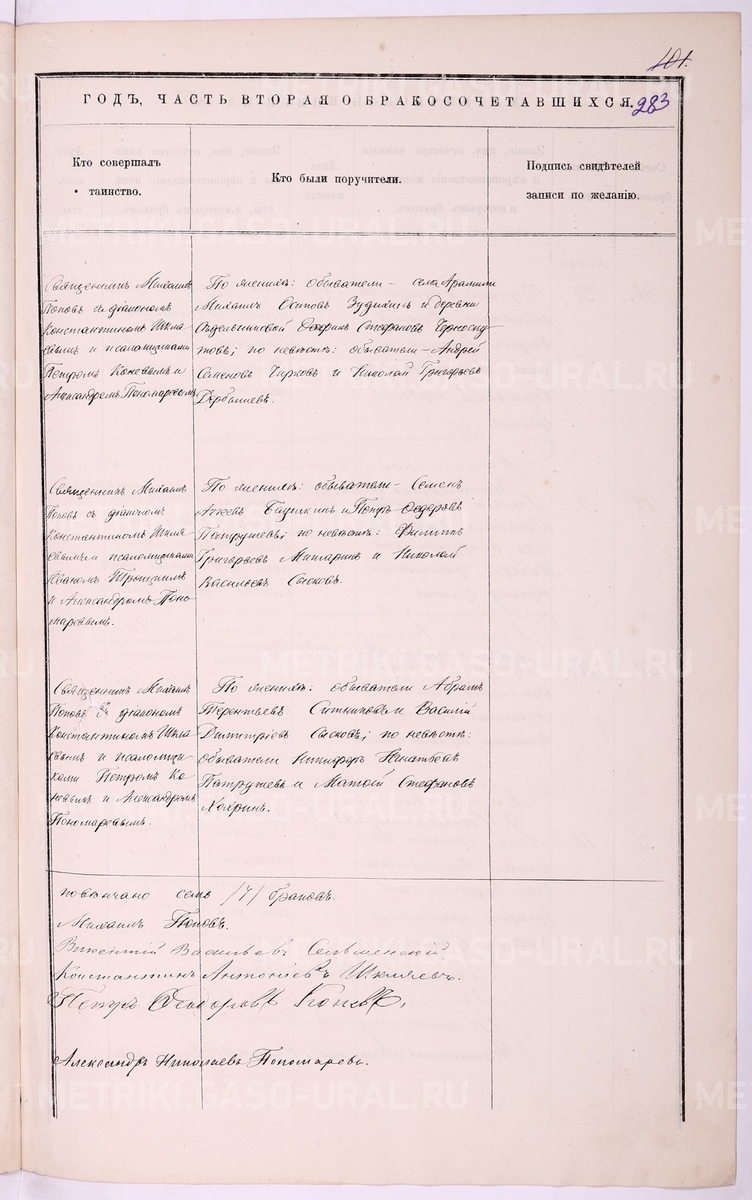 101.
283
ГОДЪ, ЧАСТЬ ВТОРАЯ О БРАКОСОЧЕТАВШИХСЯ.
Кто совершалъ
таинство.
Кто были поручители.
Подпись свидѣтелей
записи по желанію.
Священникъ Михаилъ
Поповъ съ діакономъ
Константиномъ Шкля-
евымъ и псаломщиками
Петромъ Коневымъ и
Александромъ Пономаревымъ
По женихѣ: обыватели – села Арамили
Михаилъ Осиповъ Зудихинъ и деревни
Стефановъ Черноску-
товъ; по невѣстѣ: обыватели – Андрей
Семеновъ Чирковъ и Николай Григорьевъ
Дербышевъ.
Священникъ Михаилъ
Поповъ съ діакономъ
Константиномъ Шкля-
евымъ и псаломщиками
Иваномъ Троицкимъ
и Александромъ Поно-
маревымъ.
По женихѣ: обыватели – Семенъ
и Петръ Ѳедоровъ
Патрушевъ; по невѣстѣ: Филиппъ
Григорьевъ и Николай
Васильевъ Сысковъ.
Священникъ Михаилъ
Поповъ съ діакономъ
Константиномъ Шкля-
евымъ и псаломщи-
ками Петромъ Ко-
невымъ и Александромъ
Пономаревымъ.
По женихѣ: обыватели Абрамъ
Терентьевъ Ситниковъ и Василій
Димитріевъ Сысковъ; по невѣстѣ:
обыватели Никифоръ Игнатьевъ
Патрушевъ и Матѳій Стефановъ
Хохринъ.
повѣнчано семь /7/ браковъ.
Михаилъ Поповъ.
Викентій Васильевъ Сельменскій.
Константинъ Антоніевъ Шкляевъ.
Петръ Ѳеодоровъ Коневъ.
Александръ Николаевъ Пономаревъ.
METRIKI.GASO-URAL.RU